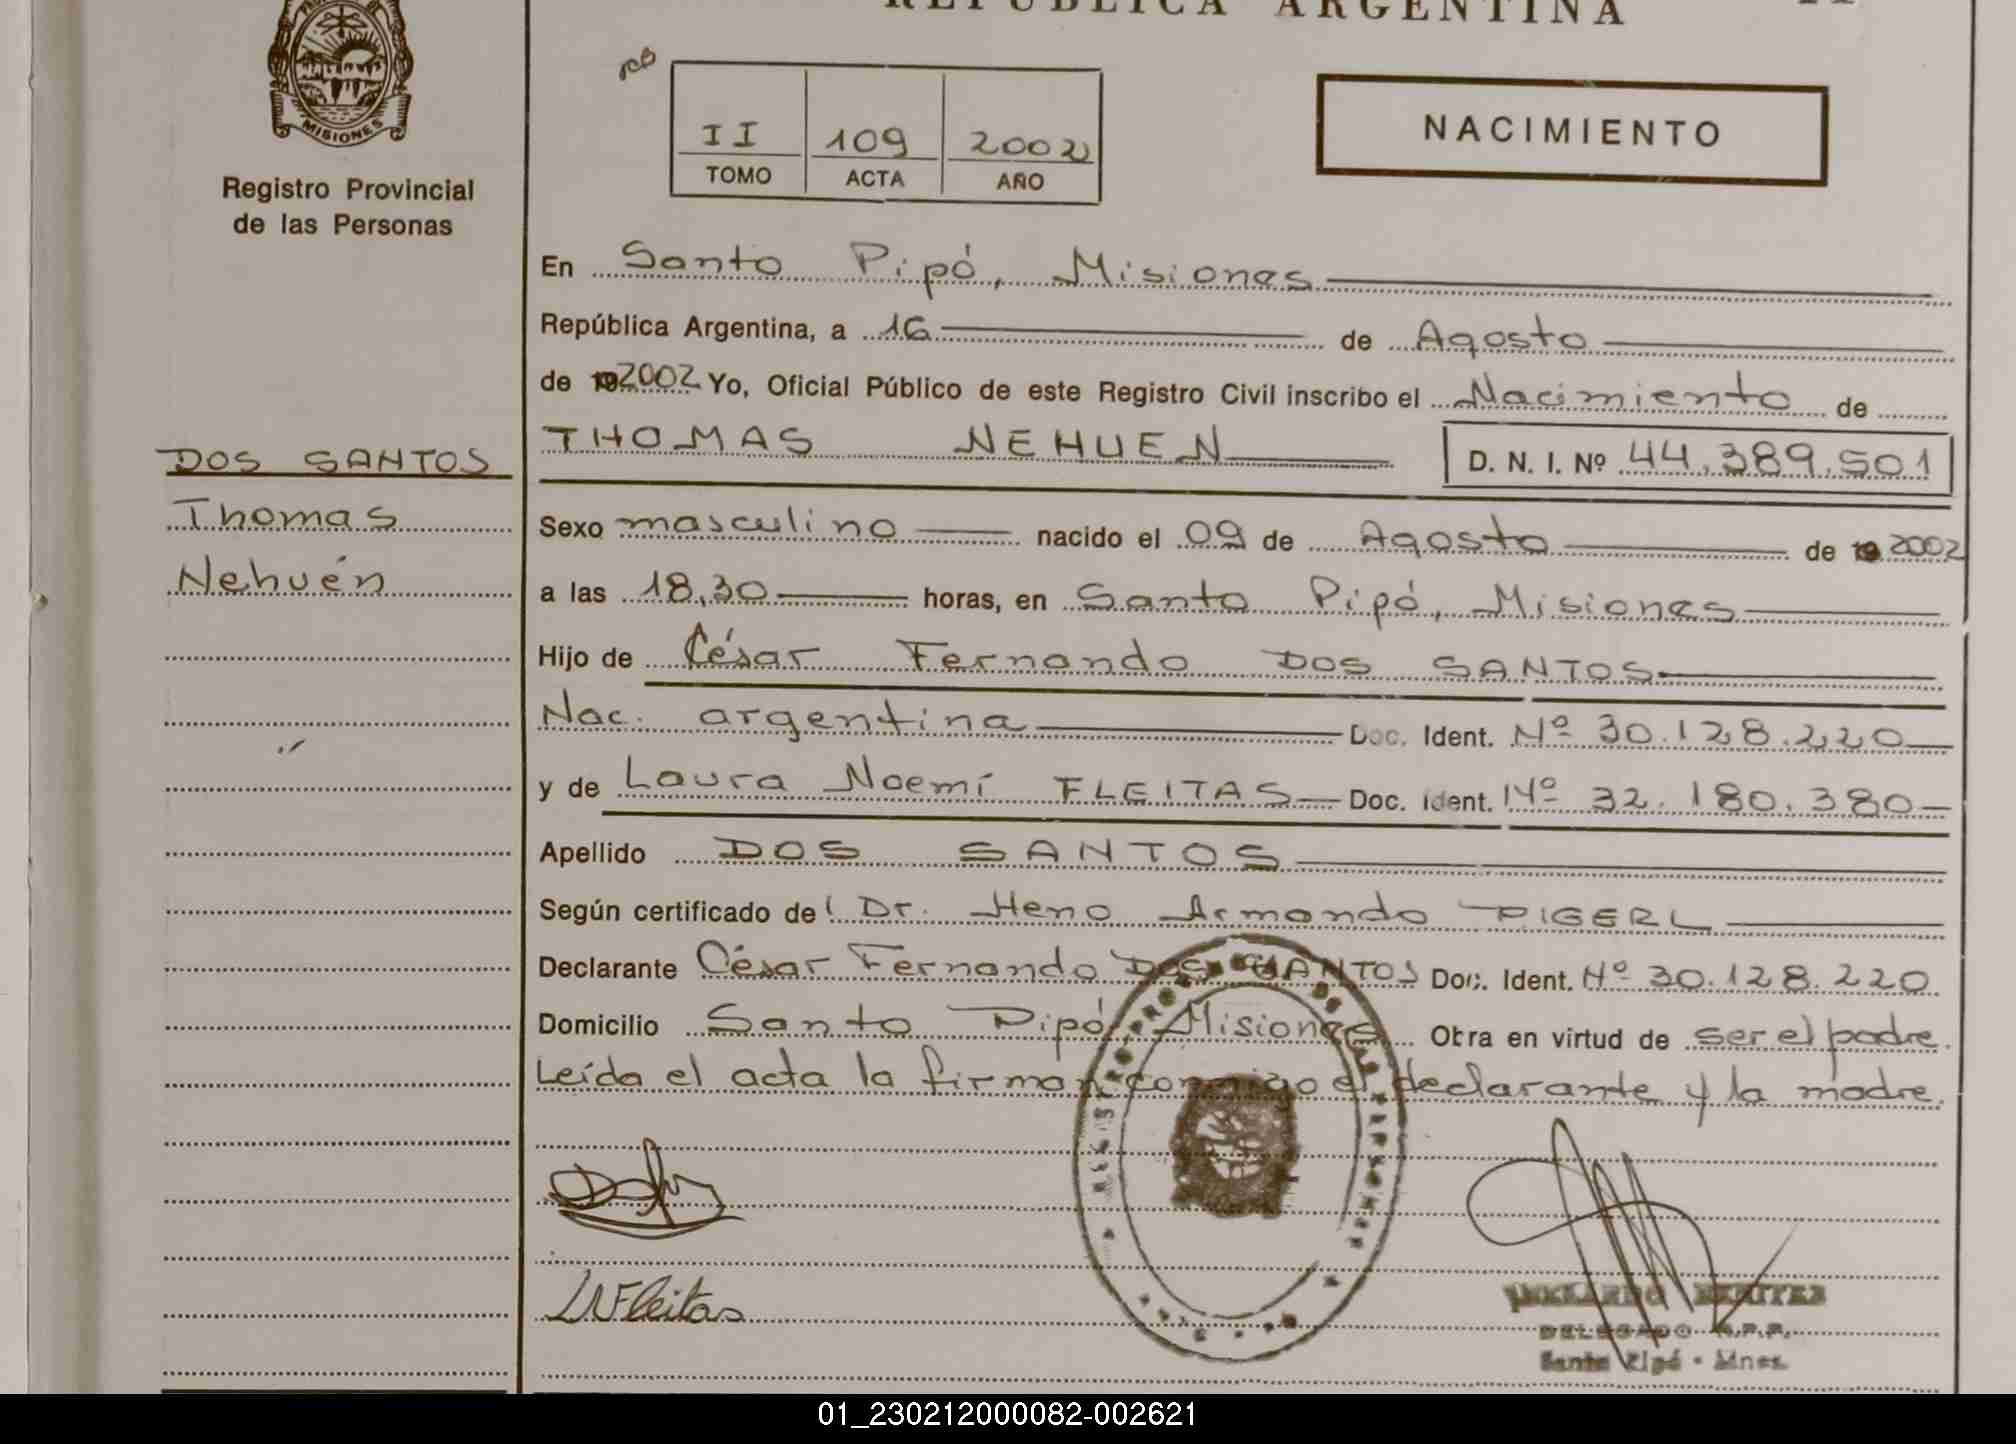 REPUBLICA ARGENTINA
MISIONES
Registro Provincial
de las Personas
II 109 2002
TOMO ACTA AÑO
NACIMIENTO
En Santo Pipó, Misiones
República Argentina, a 16 de Agosto
de 192002 Yo, Oficial Público de este Registro Civil inscribo el Nacimiento de
THOMAS NEHUEN D. N. I. Nº 44.389.501
DOS SANTOS
Thomas
Nehuén
Sexo masculino nacido el 09 de Agosto de 19 2002
a las 18,30 horas, en Santo Pipó, Misiones
Hijo de César Fernando DOS SANTOS
Nac. argentina Doc. Ident. Nº 30.128.220
y de Laura Noemí FLEITAS Doc. Ident. Nº 32.180.380
Apellido DOS SANTOS
Según certificado del Dr. Heno Armando PIGERL
Declarante César Fernando DOS SANTOS Doc. Ident. Nº 30.128.220
Domicilio Santo Pipó Misiones Obra en virtud de ser el padre.
Leída el acta la firman conmigo el declarante y la madre.
LNFleitas
BENITEZ
DELEGADO R.P.P.
Santo Pipó - Mnes.
01_230212000082-002621